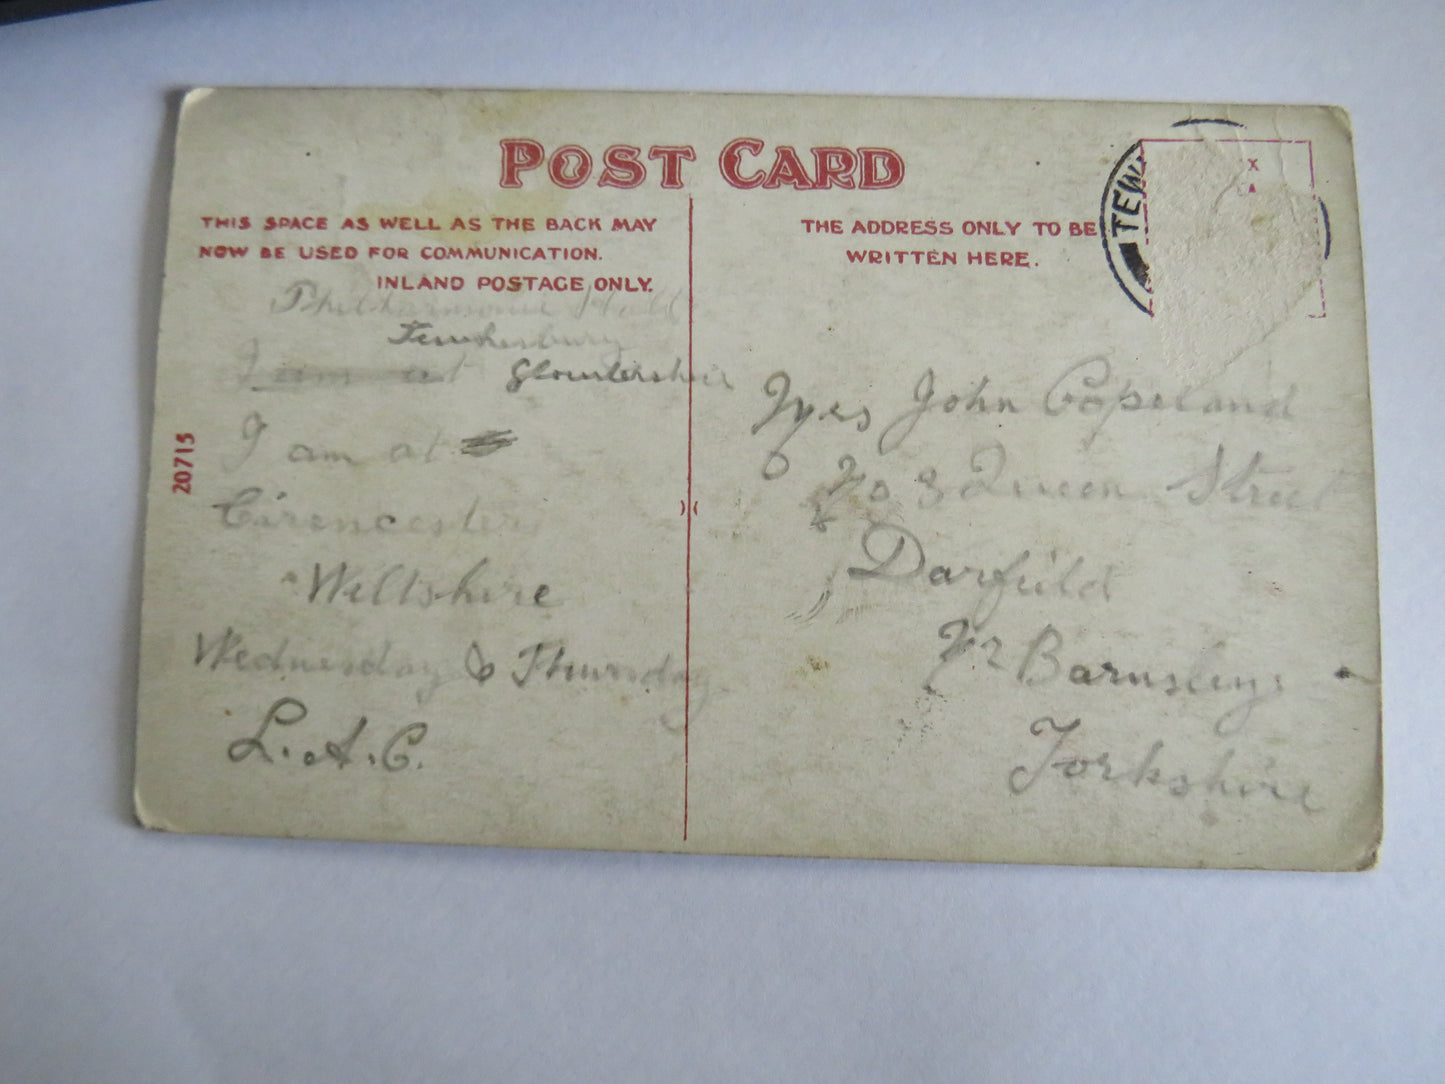 POST CARD
THIS SPACE AS WELL AS THE BACK MAY
NOW BE USED FOR COMMUNICATION.
INLAND POSTAGE ONLY.
Philharmonic Hall
Tewkesbury
I am at Gloucestershire
I am at
Cirencester
Wiltshire
Wednesday & Thursday
L.A.C.
20715
THE ADDRESS ONLY TO BE
WRITTEN HERE.
TEW
X
A
John Copeland
No 3 Queen Street
Darfield
Nr Barnsley
Yorkshire